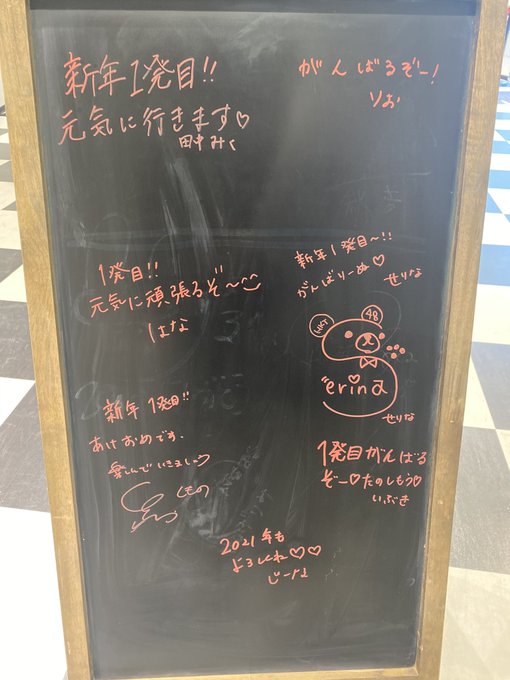 新年1発目!!
元気に行きます♡
田中みく
がんばるぞー!
りお
1発目!!
元気に頑張るぞ〜
はな
新年1発目〜!!
がんばりーぬ♡
せりな
HKT
48
"erina
せりな
新年 1発目!!
あけおめです。
楽しんでいきましょう
1発目がんばる
ぞー♡たのしもう♡
いぶき
2021年も
よろしくね♡♡
じーな